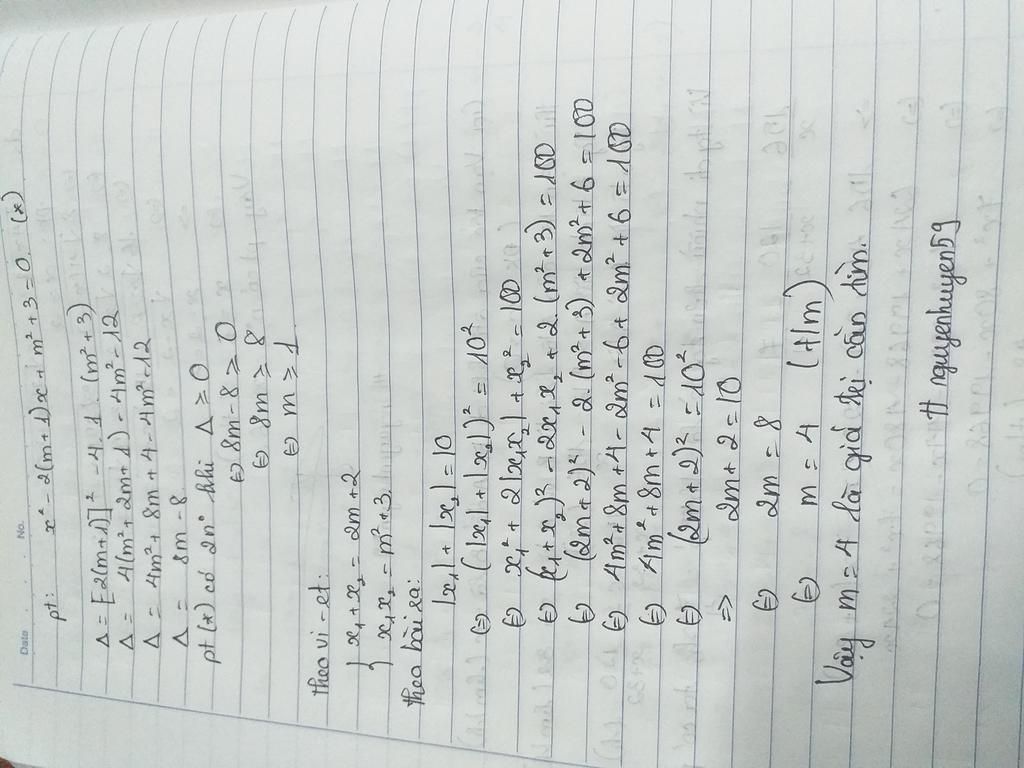 Date No.
pt: x² - 2(m+1)x + m² + 3 = 0 (*)
Δ = [-2(m+1)]² - 4.1 (m² + 3)
Δ = 4(m² + 2m + 1) - 4m² - 12
Δ = 4m² + 8m + 4 - 4m² - 12
Δ = 8m - 8
pt (*) có 2n° khi Δ ≥ 0
⇔ 8m - 8 ≥ 0
⇔ 8m ≥ 8
⇔ m ≥ 1
theo vi-et:
{ x₁ + x₂ = 2m + 2
x₁x₂ = m² + 3
theo bài ra:
|x₁| + |x₂| = 10
⇔ (|x₁| + |x₂|)² = 10²
⇔ x₁² + 2|x₁x₂| + x₂² = 100
⇔ (x₁ + x₂)² - 2x₁x₂ + 2.(m² + 3) = 100
⇔ (2m + 2)² - 2.(m² + 3) + 2m² + 6 = 100
⇔ 4m² + 8m + 4 - 2m² - 6 + 2m² + 6 = 100
⇔ 4m² + 8m + 4 = 100
⇔ (2m + 2)² = 10²
=> 2m + 2 = 10
⇔ 2m = 8
⇔ m = 4 (t/m)
Vậy m = 4 là giá trị cần tìm.
# nguyenhuyen59